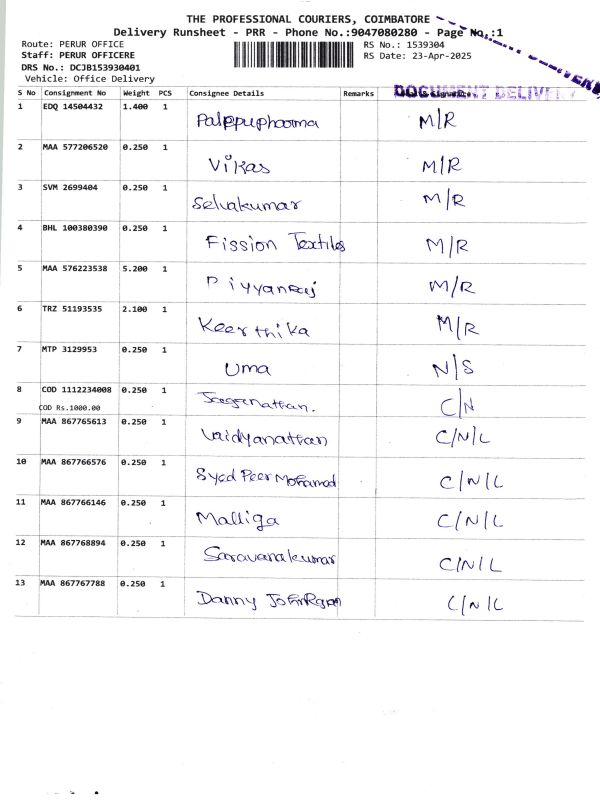 THE PROFESSIONAL COURIERS, COIMBATORE
Delivery Runsheet - PRR - Phone No.:9047080280 - Page No.:1
Route: PERUR OFFICE
Staff: PERUR OFFICERE
DRS No.: DCJB153930401
Vehicle: Office Delivery
RS No.: 1539304
RS Date: 23-Apr-2025
DOCUMENT DELIVERY
S No Consignment No Weight PCS Consignee Details Remarks
1 EDQ 14504432 1.400 1 Palppupharma M/R
2 MAA 577206520 0.250 1 Vikas M/R
3 SVM 2699404 0.250 1 Selvakumar M/R
4 BHL 100380390 0.250 1 Fission Textiles M/R
5 MAA 576223538 5.200 1 M/R
6 TRZ 51193535 2.100 1 Keerthika M/R
7 MTP 3129953 0.250 1 Uma N/S
8 COD 1112234008 0.250 1 Jaganathan. C/N
COD Rs.1000.00
9 MAA 867765613 0.250 1 Vaidyanathan C/N/L
10 MAA 867766576 0.250 1 Syed Peer Mohamad C/N/L
11 MAA 867766146 0.250 1 Malliga C/N/L
12 MAA 867768894 0.250 1 Saravanakumar C/N/L
13 MAA 867767788 0.250 1 Danny C/N/L